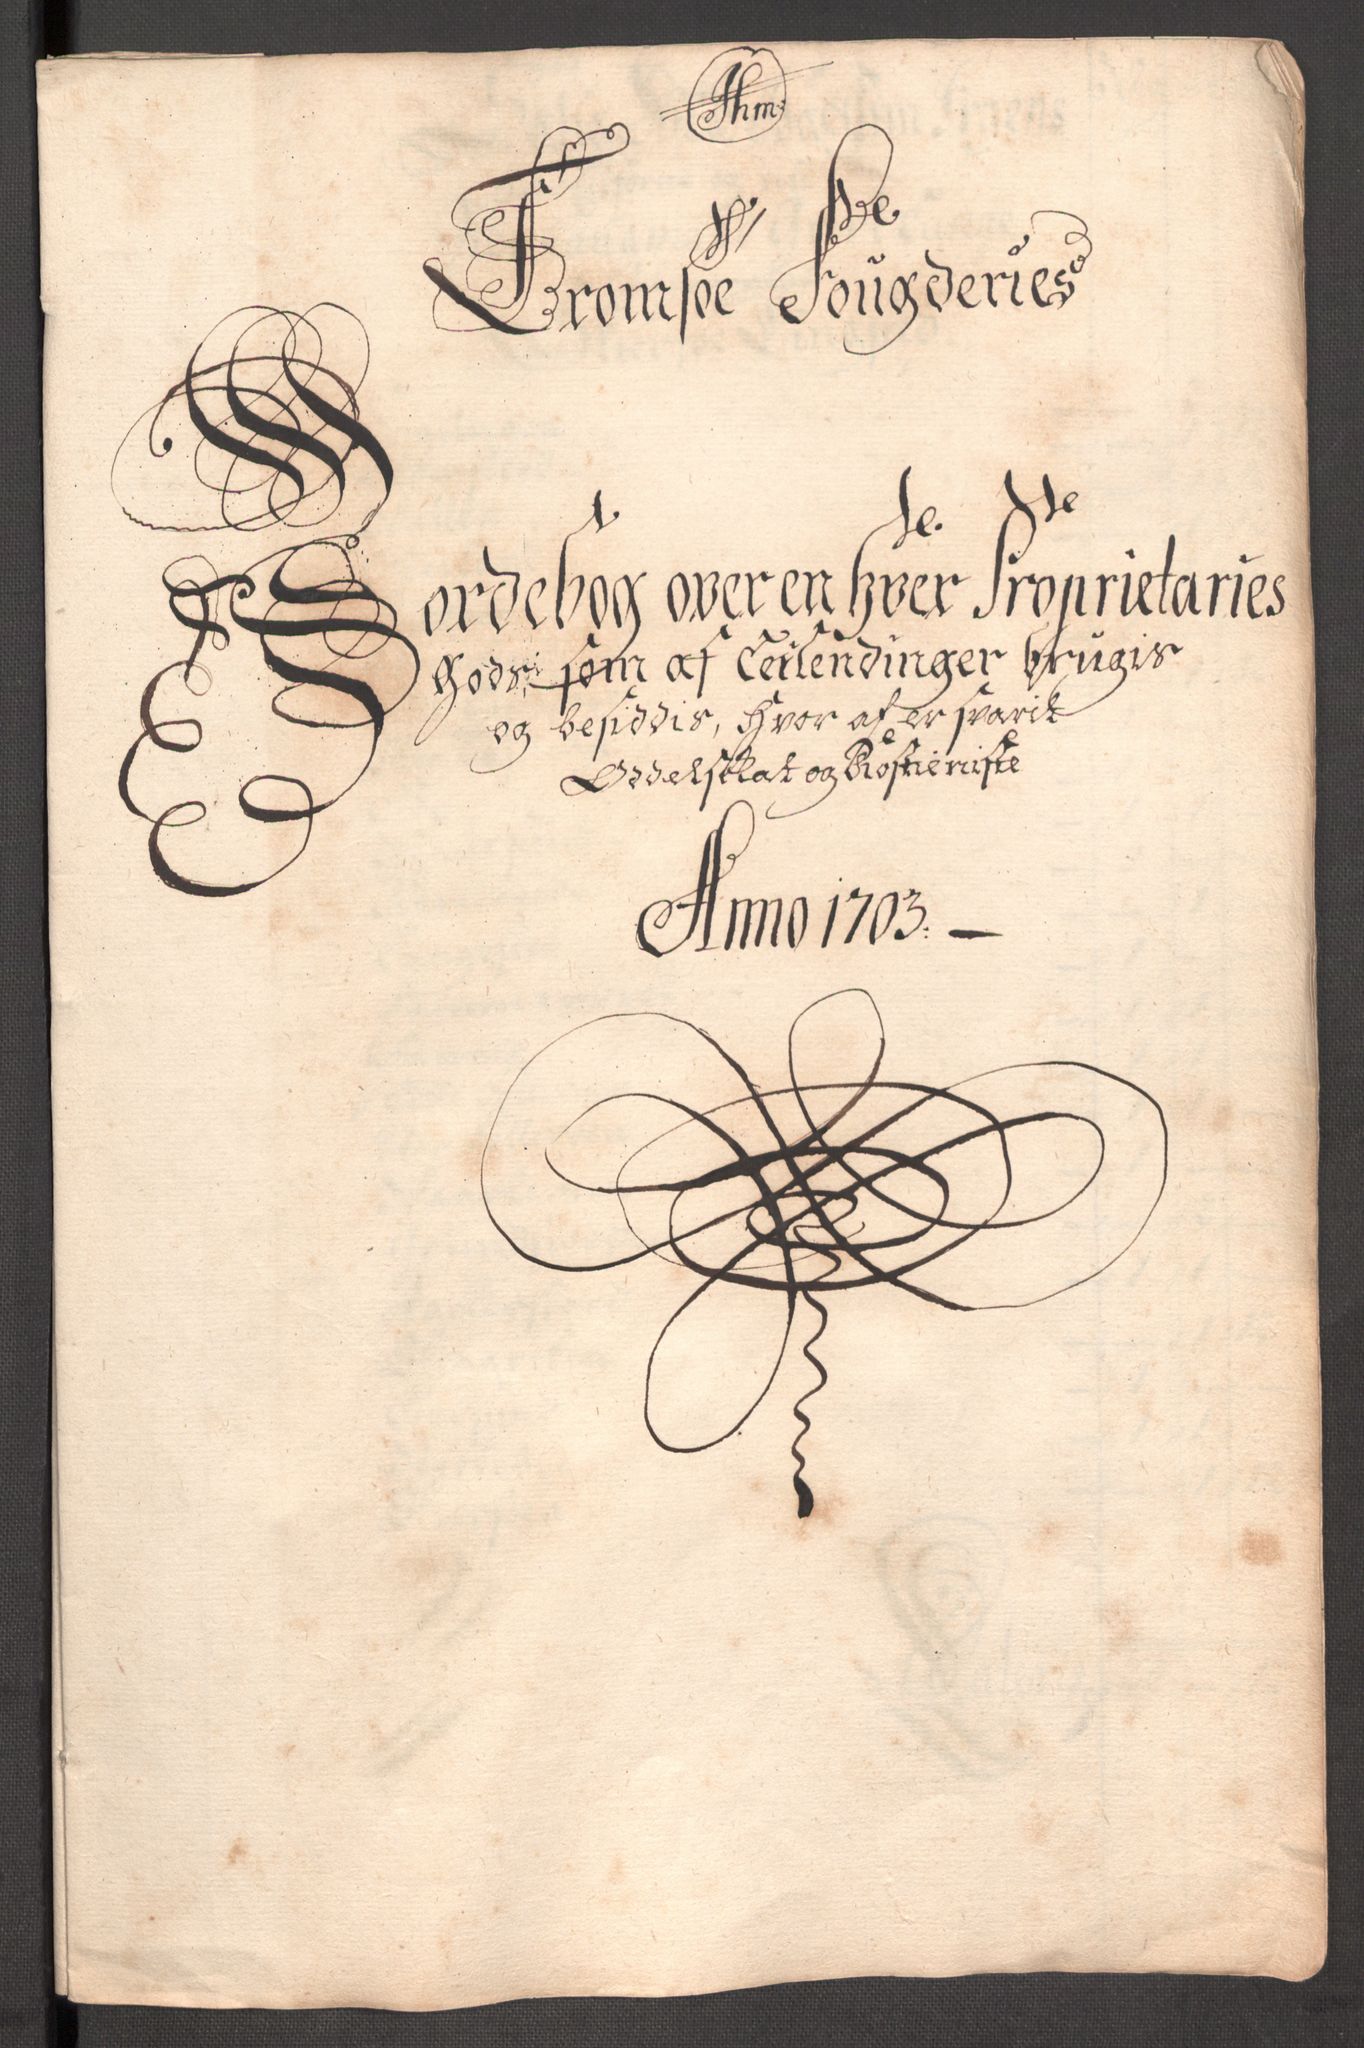 Tromsøe Fougderies
Jordebog over en hver Proprietaries
Gods, som af Leilendinger brugis
og besiddis, hvor af er svarit
Oddelskat og Rostieniste
Anno 1703.